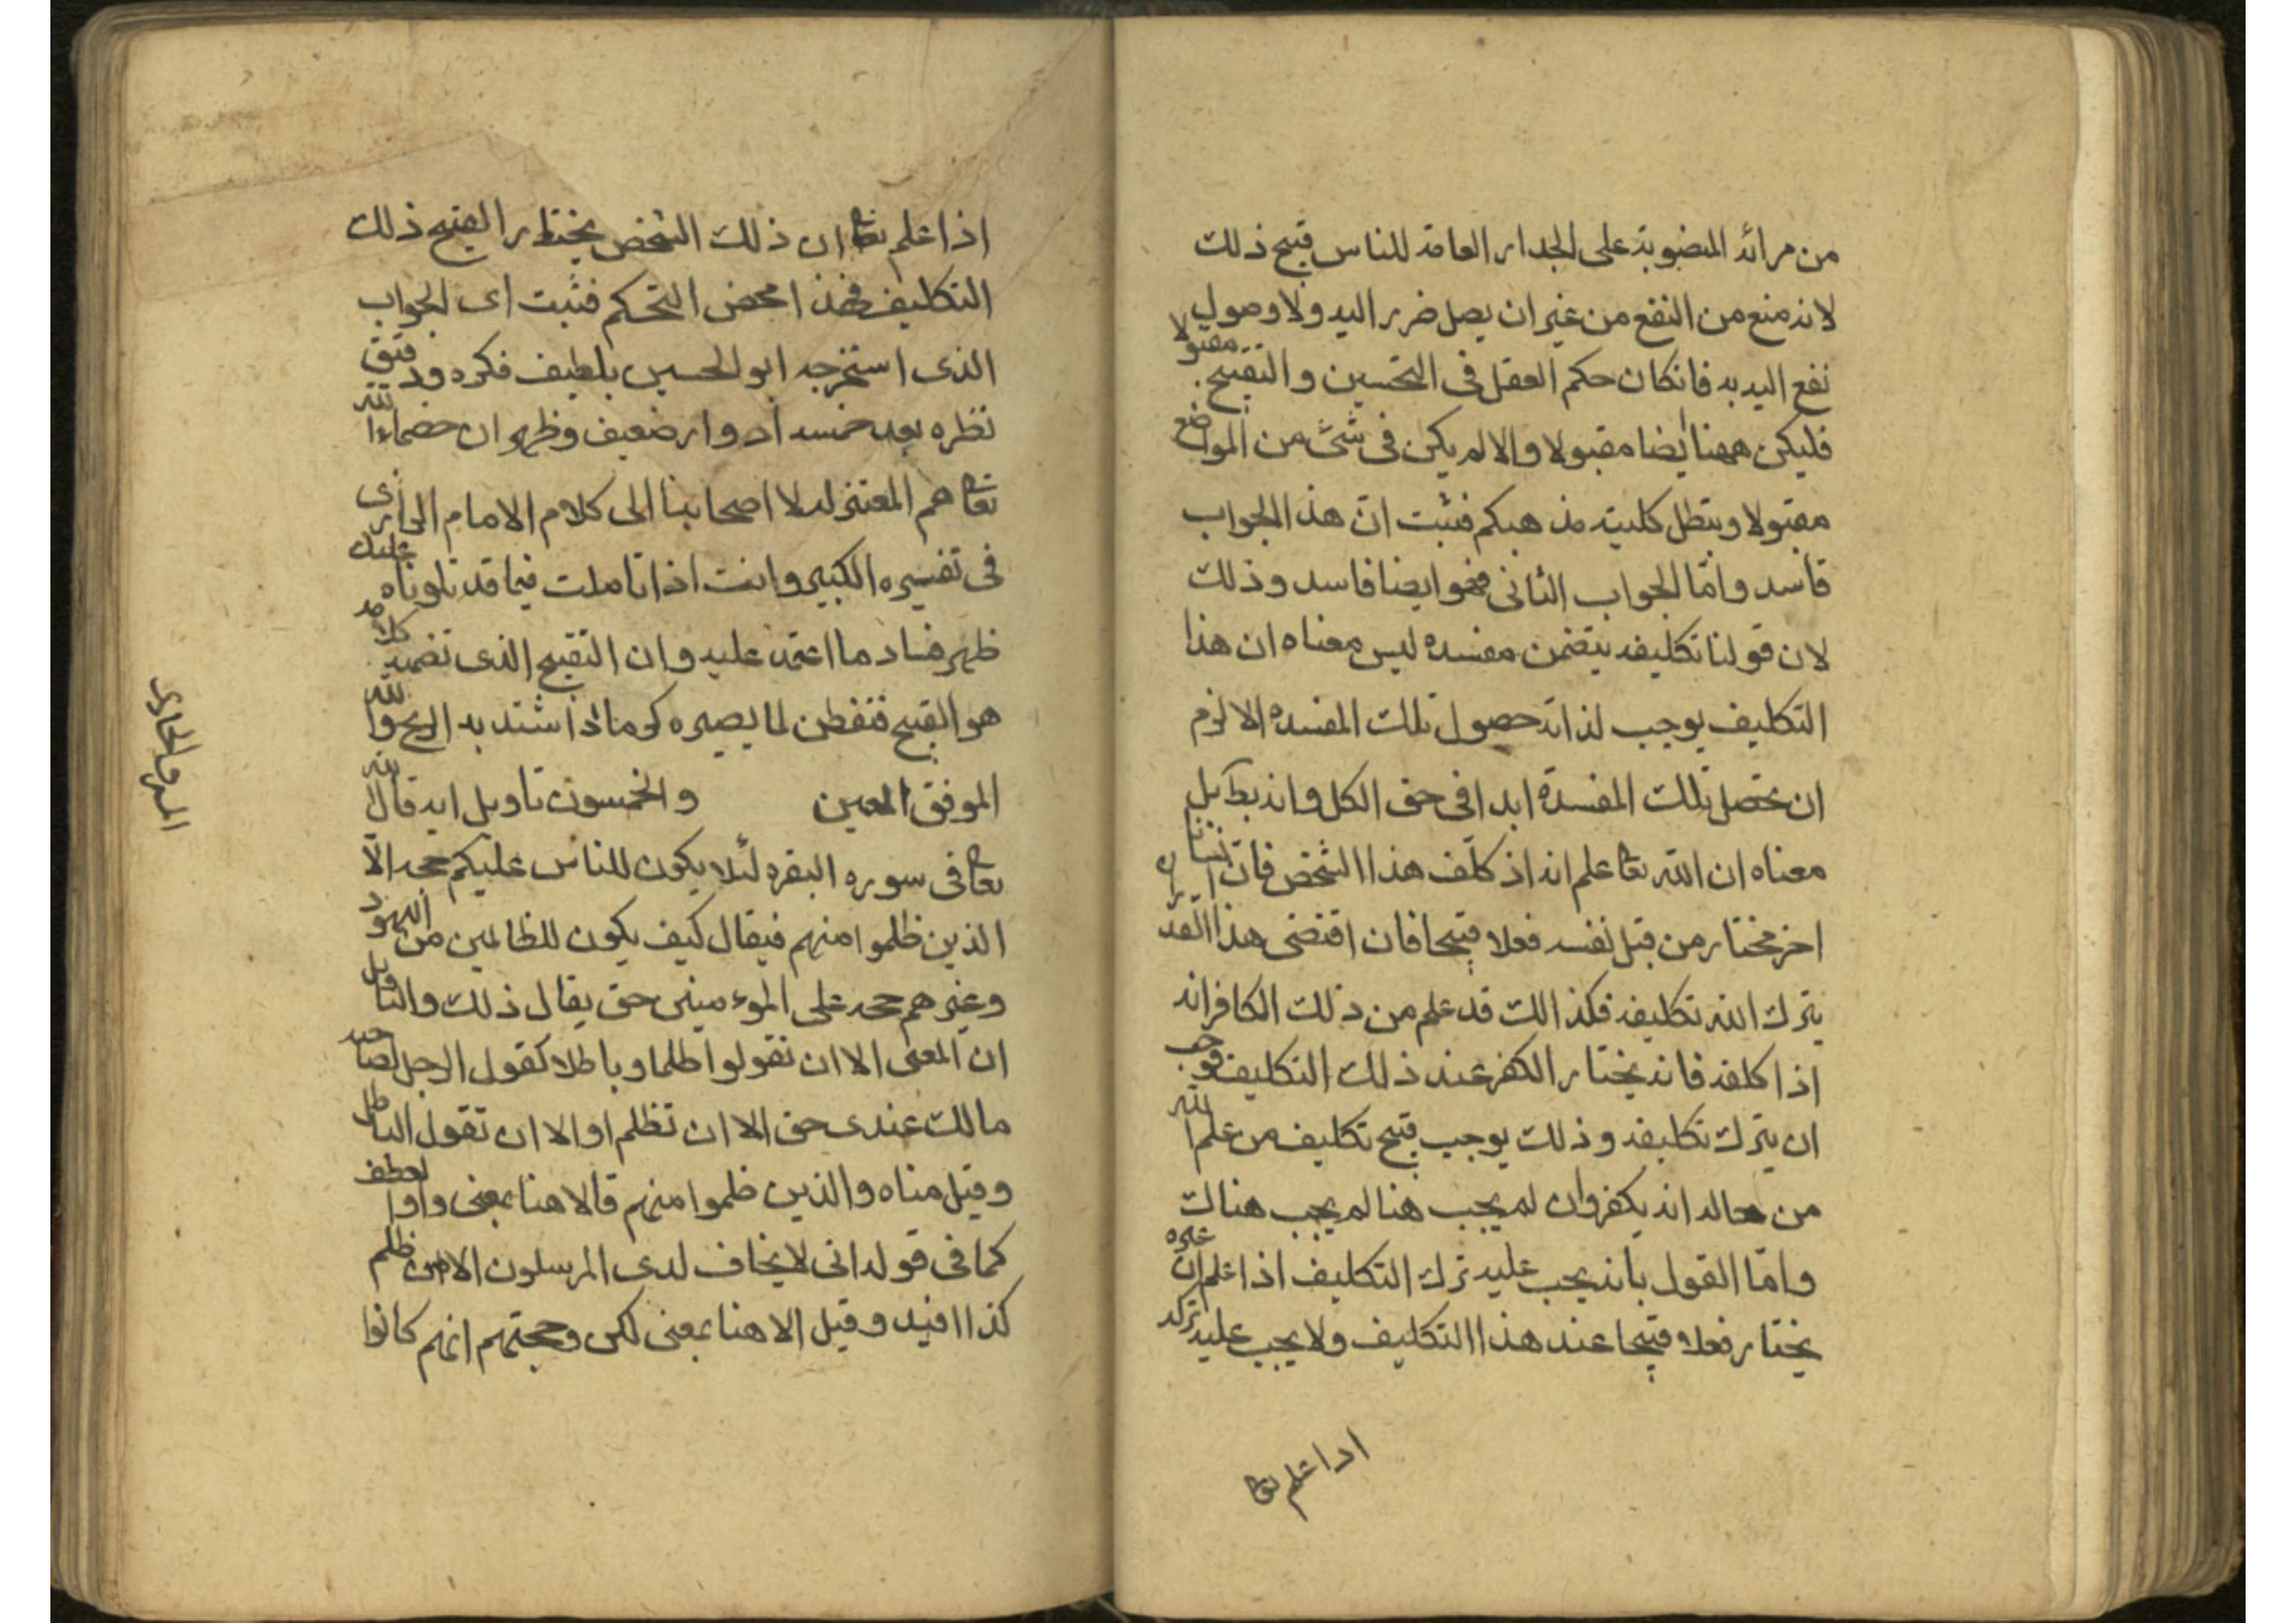 من مرائه المنصوبة على الجدار العامة للناس قبح ذلك
لانه منع من النفع من غير ان يصل ضرر اليه ولا وصول
نفع اليه به فانكان حكم العقل فى التحسين والتقبيح مقبولا
فليكن ههنا ايضا مقبولا والا لم يكن فى شئ من المواضع
مقبولا ويبطل كلية مذهبكم فثبت ان هذ الجواب
فاسد وامّا الجواب الثانى فهو ايضا فاسد وذلك
لان قولنا تكليفه يتضمن مفسده ليس معناه ان هذا
التكليف يوجب لذاته حصول تلك المفسده والا لزم
ان تحصل تلك المفسدة ابدا فى حق الكل وانه بط بل
معناه ان الله تعا علم انه اذ كلّف هذا الشخص فان انسانا
اخر مختار من قبل نفسه فعلا قبيحا فان اقتضى هذا القدر ان
يترك الله تكليفه فكذالك قد علم من ذلك الكافر انه
اذا كلفه فانه يختار الكفر عند ذلك التكليف فوجب
ان يترك تكليفه وذلك يوجب قبح تكليف من علم الله
من حاله انه يكفر وان لم يجب هنا لم يجب هنالك
وامّا القول بانه يجب عليه ترك التكليف اذا علم ان غيره
يختار فعلا قبيحا عند هذا التكليف ولا يجب عليه تركه
اذا علم تعا
اذا علم تعا ان ذلك الشخص يختار القبيح ذلك
التكليف فهذا محض التحكم فثبت اى الجواب
الذى استخرجه ابو الحسين بلطيف فكره ودقيق
نظره بعد خمسه ادوار ضعيف وظهر ان خصماء الله
تعا هم المعتزله لا اصحابنا الى كلام الامام الرازى
فى تفسيره الكبير وانت اذا تاملت فيما قد تلوناه عليك
ظهر فساد ما اعتمد عليه وان التقبيح الذى تضمنه كلامه
هو القبيح فتفطن لما يصيره كرماد اشتد به الريح والله
الموفق المعين والخمسون تاويل ايه قال الله
تعا فى سوره البقره لئلا يكون للناس عليكم حجه الّا
الذين ظلموا منهم فيقال كيف يكون للظالمين من اليهود
وغيرهم حجه على الموءمنين حتى يقال ذلك والتاويل
ان المعنى الا ان تقولوا ظلما وباطلا كقول الرجل لصاحبه
مالك عندى حق الا ان تظلم او الا ان تقول الباطل
وقيل مناه والذين ظلموا منهم فالا هنا بمعنى واو العطف
كما فى قوله انى لا يخاف لدى المرسلون الا من ظلم
كذا افيد وقيل الا هنا بمعنى لكن وحجتهم انهم كانوا